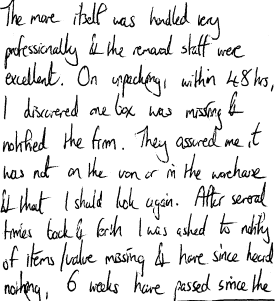 The move itself was handled very
professionally & the removal staff were
excellent. On unpacking, within 48hrs,
I discovered one box was missing &
notified the firm. They assured me it
was not on the van or in the warehouse
& that I should look again. After several
times back & forth I was asked to notify
of items/value missing & have since heard
nothing, 6 weeks have passed since the